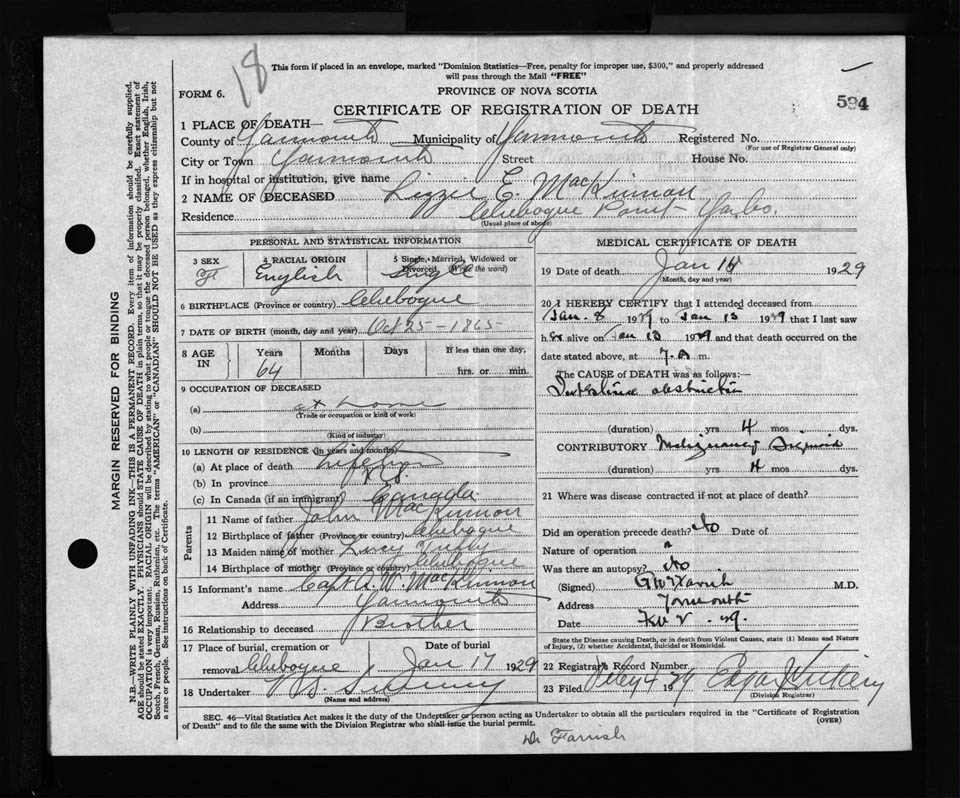 18
This form if placed in an envelope, marked "Dominion Statistics—Free, penalty for improper use, $300," and properly addressed
will pass through the Mail "FREE"
FORM 6.
PROVINCE OF NOVA SCOTIA
594
CERTIFICATE OF REGISTRATION OF DEATH
1 PLACE OF DEATH—
County of Yarmouth Municipality of Yarmouth Registered No.
(For use of Registrar General only)
City or Town Yarmouth Street House No.
If in hospital or institution, give name
2 NAME OF DECEASED Lizzie E. MacKinnon
Residence Chebogue Point Yar. Co.
(Usual place of abode)
PERSONAL AND STATISTICAL INFORMATION
3 SEX F
4 RACIAL ORIGIN English
5 Single, Married, Widowed or Divorced (Write the word) Single
6 BIRTHPLACE (Province or country) Chebogue
7 DATE OF BIRTH (month, day and year) Oct 25 - 1865
8 AGE IN Years Months Days If less than one day,
64 hrs. or min.
9 OCCUPATION OF DECEASED
(a) at home
(Trade or occupation or kind of work)
(b)
(Kind of industry)
10 LENGTH OF RESIDENCE (in years and months)
(a) At place of death Life
(b) In province
(c) In Canada (if an immigrant) Canada
Parents
11 Name of father John MacKinnon
12 Birthplace of father (Province or country) Chebogue
13 Maiden name of mother Lucy
14 Birthplace of mother (Province or country) Chebogue
15 Informant's name Capt A. W. MacKinnon
Address Yarmouth
16 Relationship to deceased Brother
17 Place of burial, cremation or Date of burial
removal Chebogue Jan 17 1929
18 Undertaker
(Name and address)
MEDICAL CERTIFICATE OF DEATH
19 Date of death Jan 15 1929
(Month, day and year)
20 I HEREBY CERTIFY that I attended deceased from
Jan. 8 1929 to Jan 15 1929 that I last saw
her alive on Jan 13 1929 and that death occurred on the
date stated above, at 7. A m.
The CAUSE of DEATH was as follows:—
Intestinal obstruction
(duration) yrs 4 mos dys.
CONTRIBUTORY Malignancy Sigmoid
(duration) yrs 4 mos dys.
21 Where was disease contracted if not at place of death?
Did an operation precede death? No Date of
Nature of operation
Was there an autopsy? No
(Signed) G W Farish M.D.
Address Yarmouth
Date Feb 2. 29.
State the Disease causing Death, or in death from Violent Causes, state (1) Means and Nature
of Injury, (2) whether Accidental, Suicidal or Homicidal.
22 Registrar's Record Number
23 Filed Feby 4 1929
(Division Registrar)
SEC. 46—Vital Statistics Act makes it the duty of the Undertaker or person acting as Undertaker to obtain all the particulars required in the "Certificate of Registration
of Death" and to file the same with the Division Registrar who shall issue the burial permit.
(OVER)
Dr Farrish
MARGIN RESERVED FOR BINDING
N.B.—WRITE PLAINLY WITH UNFADING INK—THIS IS A PERMANENT RECORD. Every item of information should be carefully supplied.
AGE should be stated EXACTLY. PHYSICIANS should STATE CAUSE OF DEATH in plain terms, so that it may be properly classified. Exact statement of
OCCUPATION is very important. RACIAL ORIGIN will be described by stating to what people or tongue the deceased person belonged, whether English, Irish,
Scotch, French, German, Russian, Ruthenian, etc. The terms "AMERICAN" or "CANADIAN" SHOULD NOT BE USED as they express citizenship but not
a race or people. See instructions on back of Certificate.